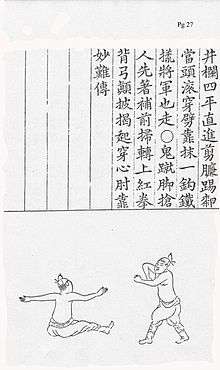 Pg 27
井欄四平直進剪臁踢䣛
當頭滾穿劈靠抹一鈎鐵
樣將軍也走○鬼蹴脚搶
人先著補前掃轉上紅拳
背弓顛披揭起穿心肘靠
妙難傳